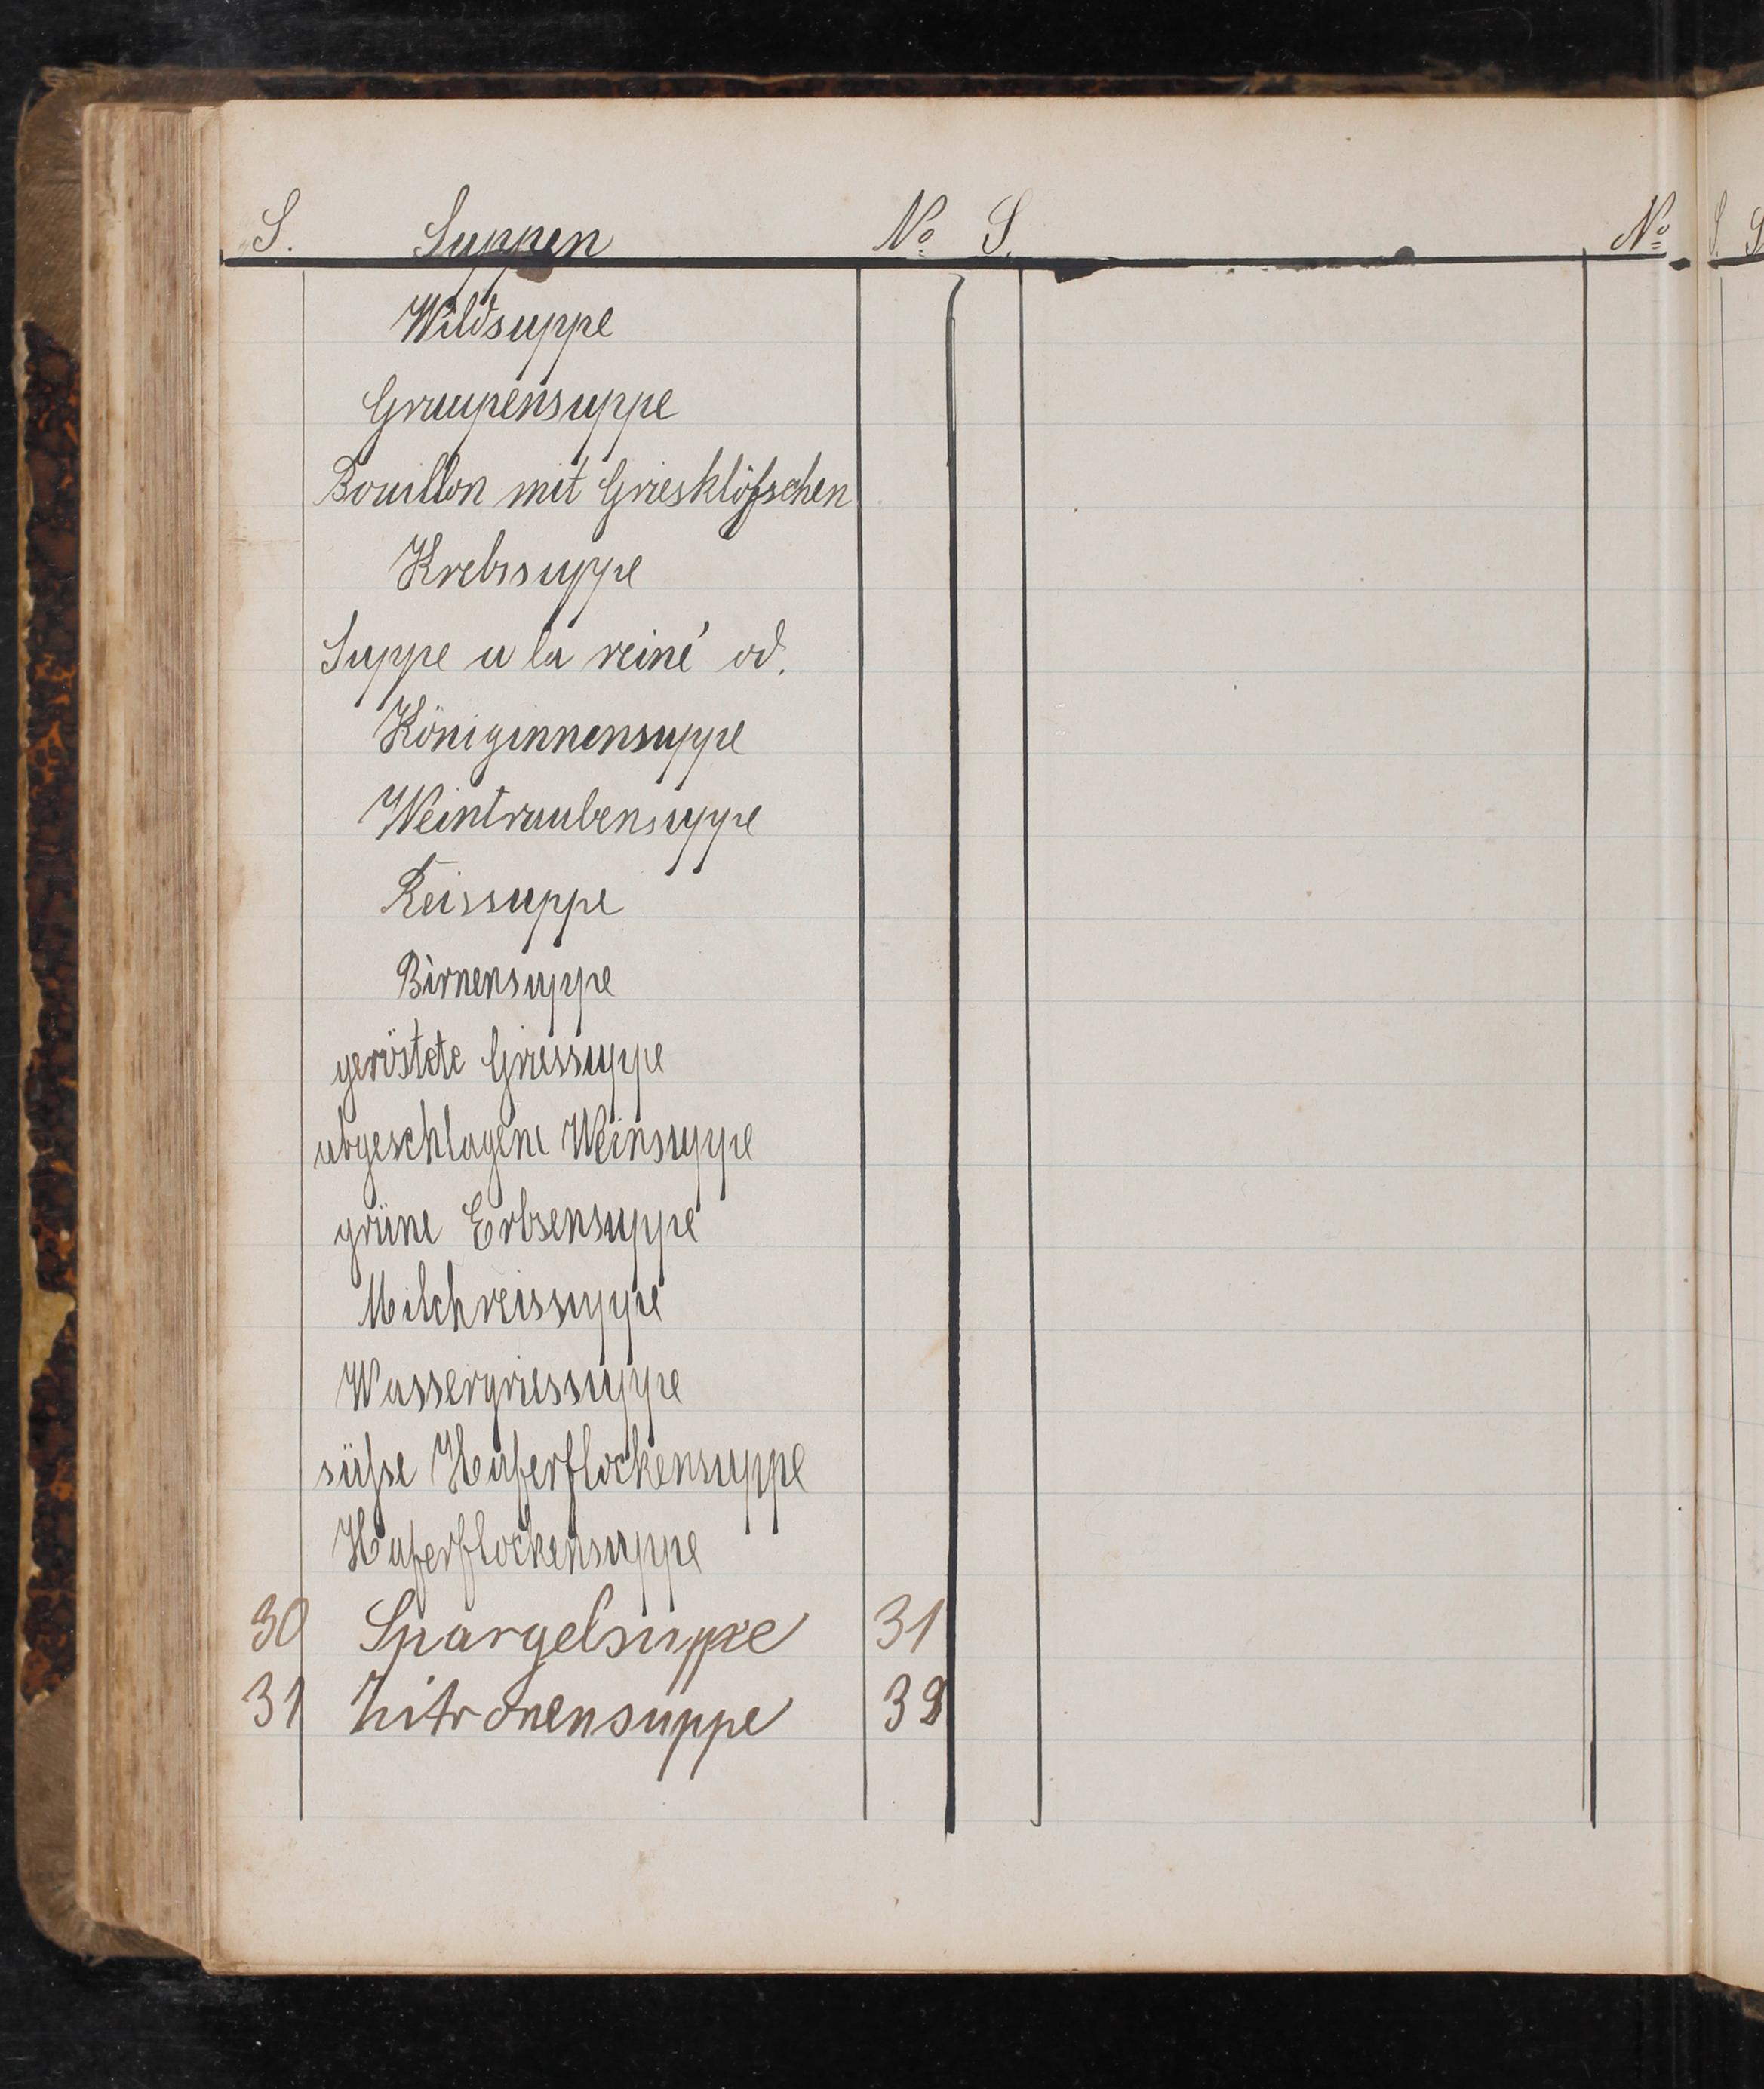 S. Suppen No S. No
Wildsuppe
Graupensuppe
Bouillon mit Griesklößchen
Krebssuppe
Suppe a la reiné od.
Königinnensuppe
Weintraubensuppe
Reissuppe
Birnensuppe
geröstete Griessuppe
abgeschlagene Weinsuppe
grüne Erbsensuppe
Milchreissuppe
Wassergriessuppe
süße Haferflockensuppe
Haferflockensuppe
30 Spargelsuppe 31
31 Zitronensuppe